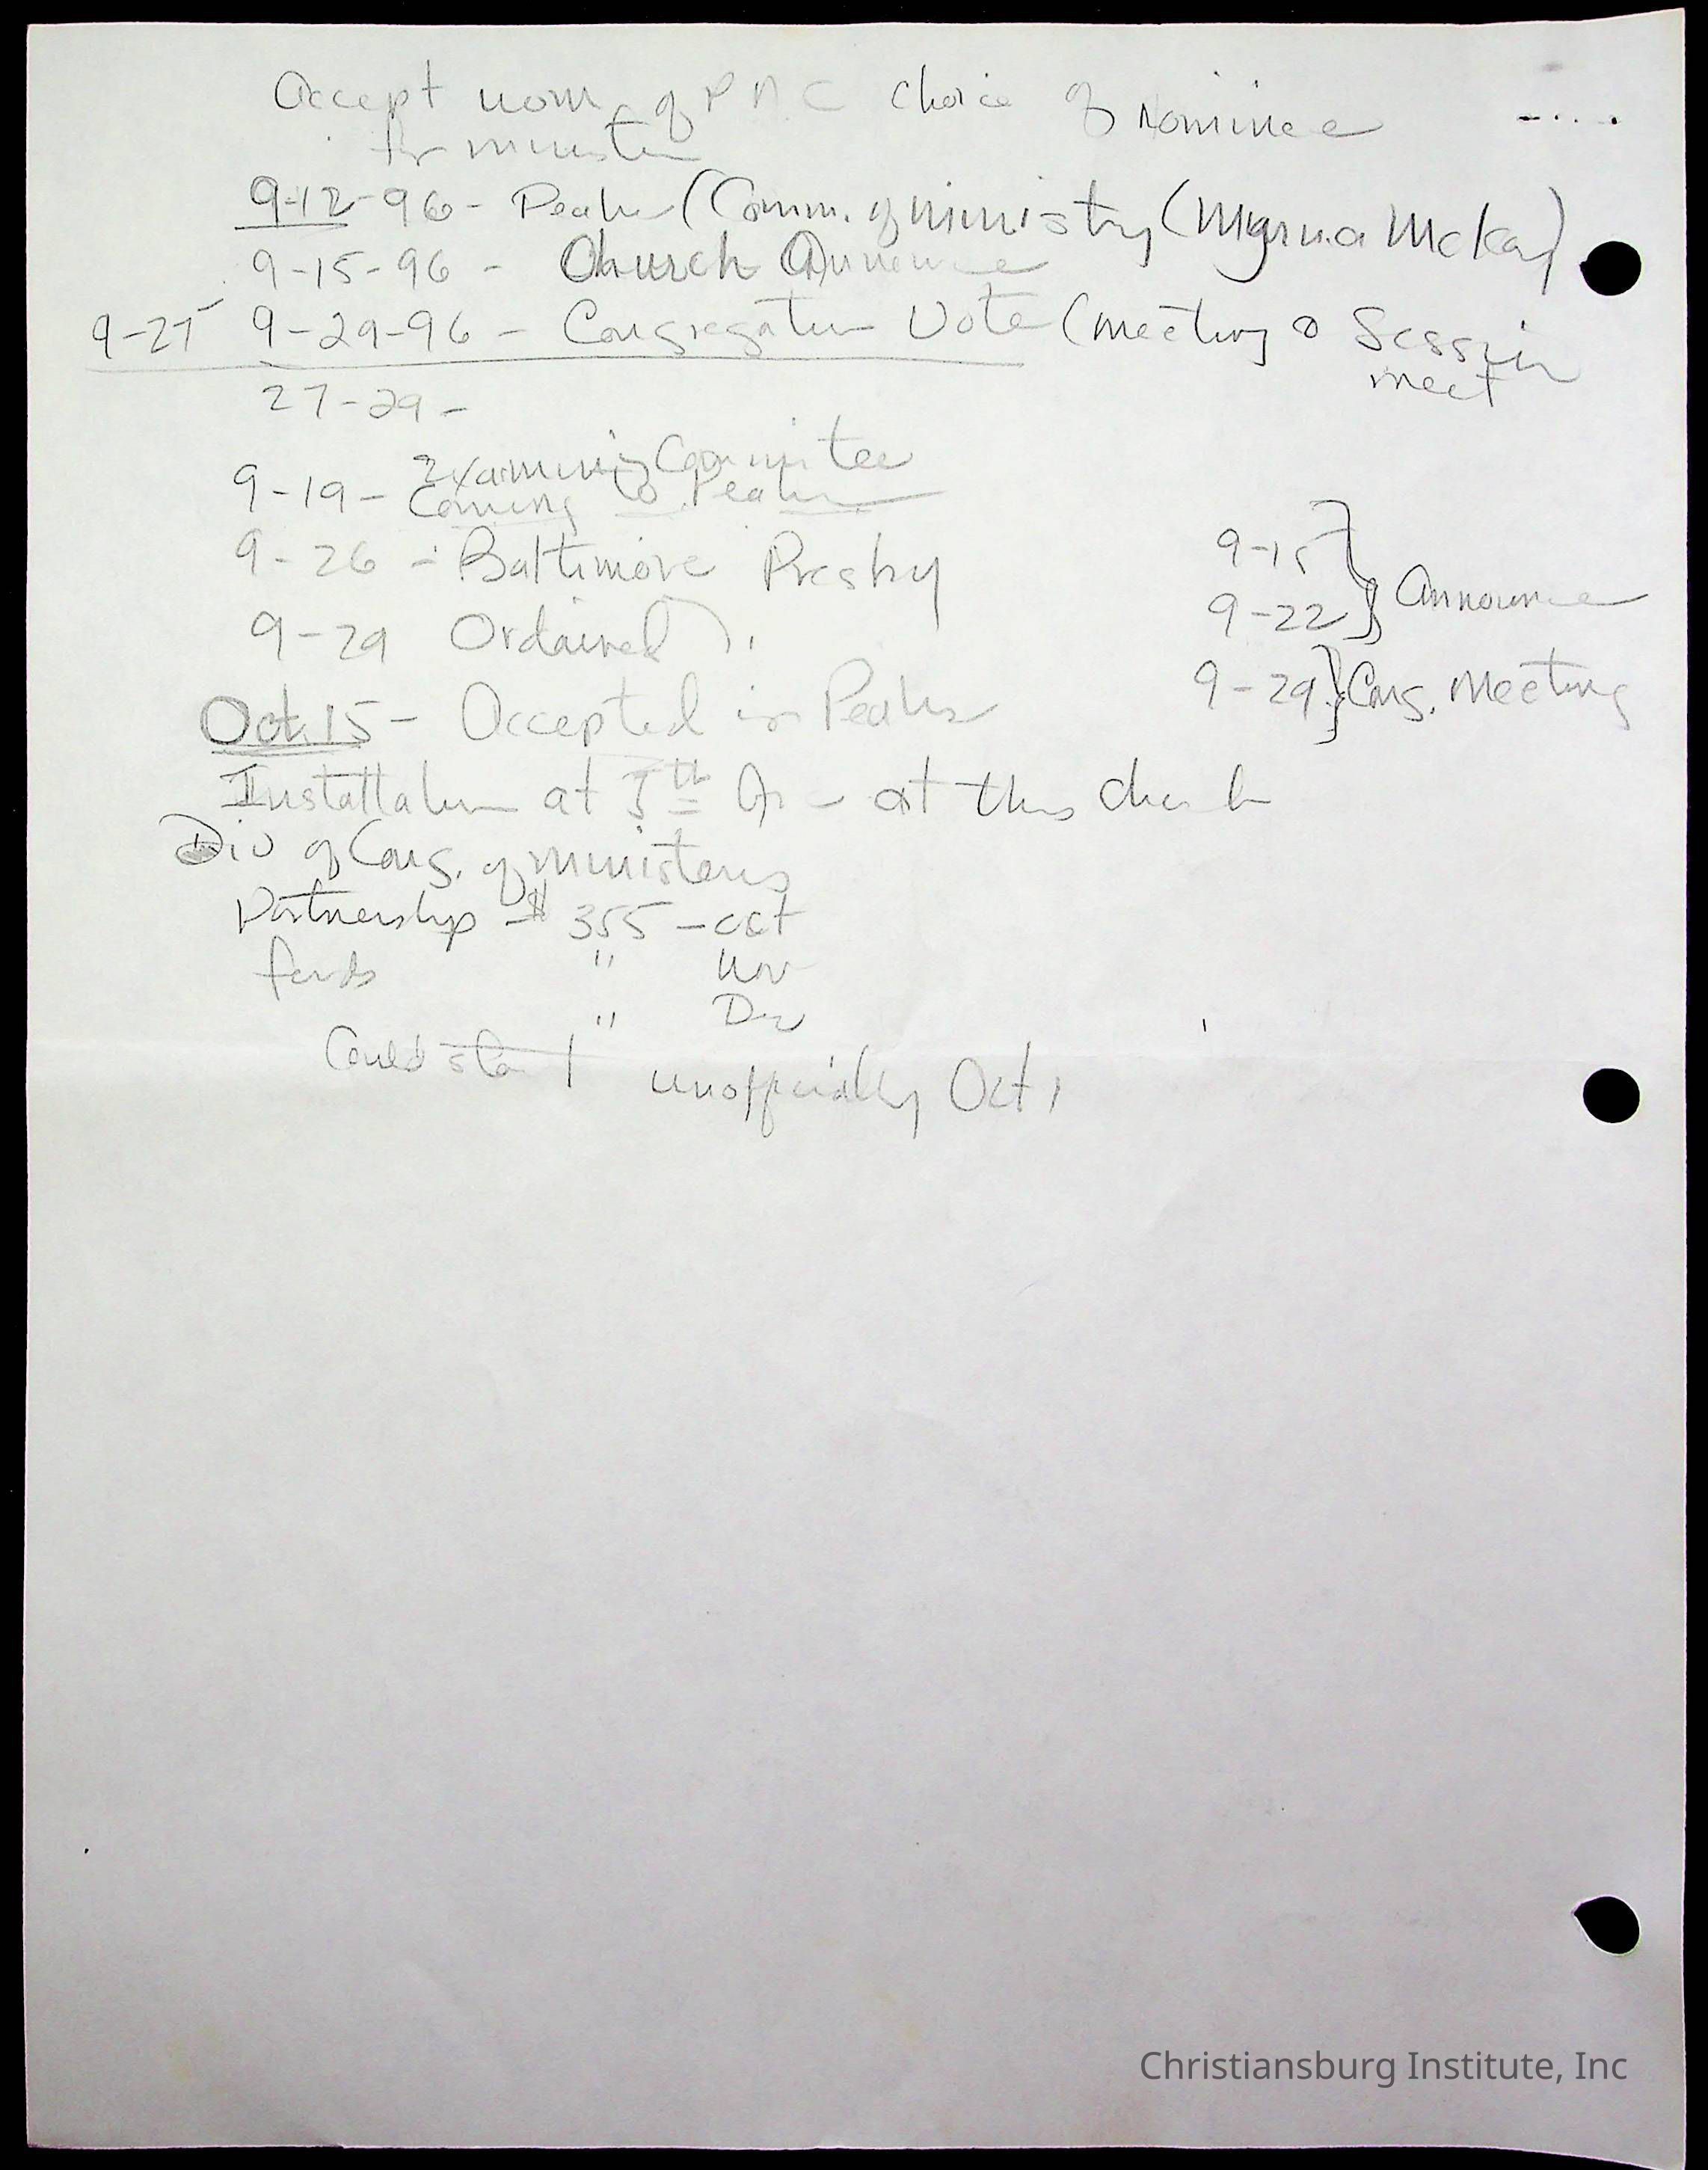 Accept nom. of PNC choice of Nominee
for minister
9-12-96 - Peaks (Comm. of ministry (Myrna McKay)
9-15-96 - Church Announce
9-27 9-29-96 - Congregation Vote (meeting & Session
meet
27-29-
9-19- Examining Committee
Coming to Peaks
9-26 - Baltimore Presby
9-29 Ordained
9-15
9-22 } Announce
9-29 } Cong. Meeting
Oct. 15 - Accepted in Peaks
Installation at 5th - at this church
Div of Cong. of ministers
Partnership - $ 355 - Oct
funds " Nov
" Dec
Could start unofficially Oct 1
Christiansburg Institute, Inc